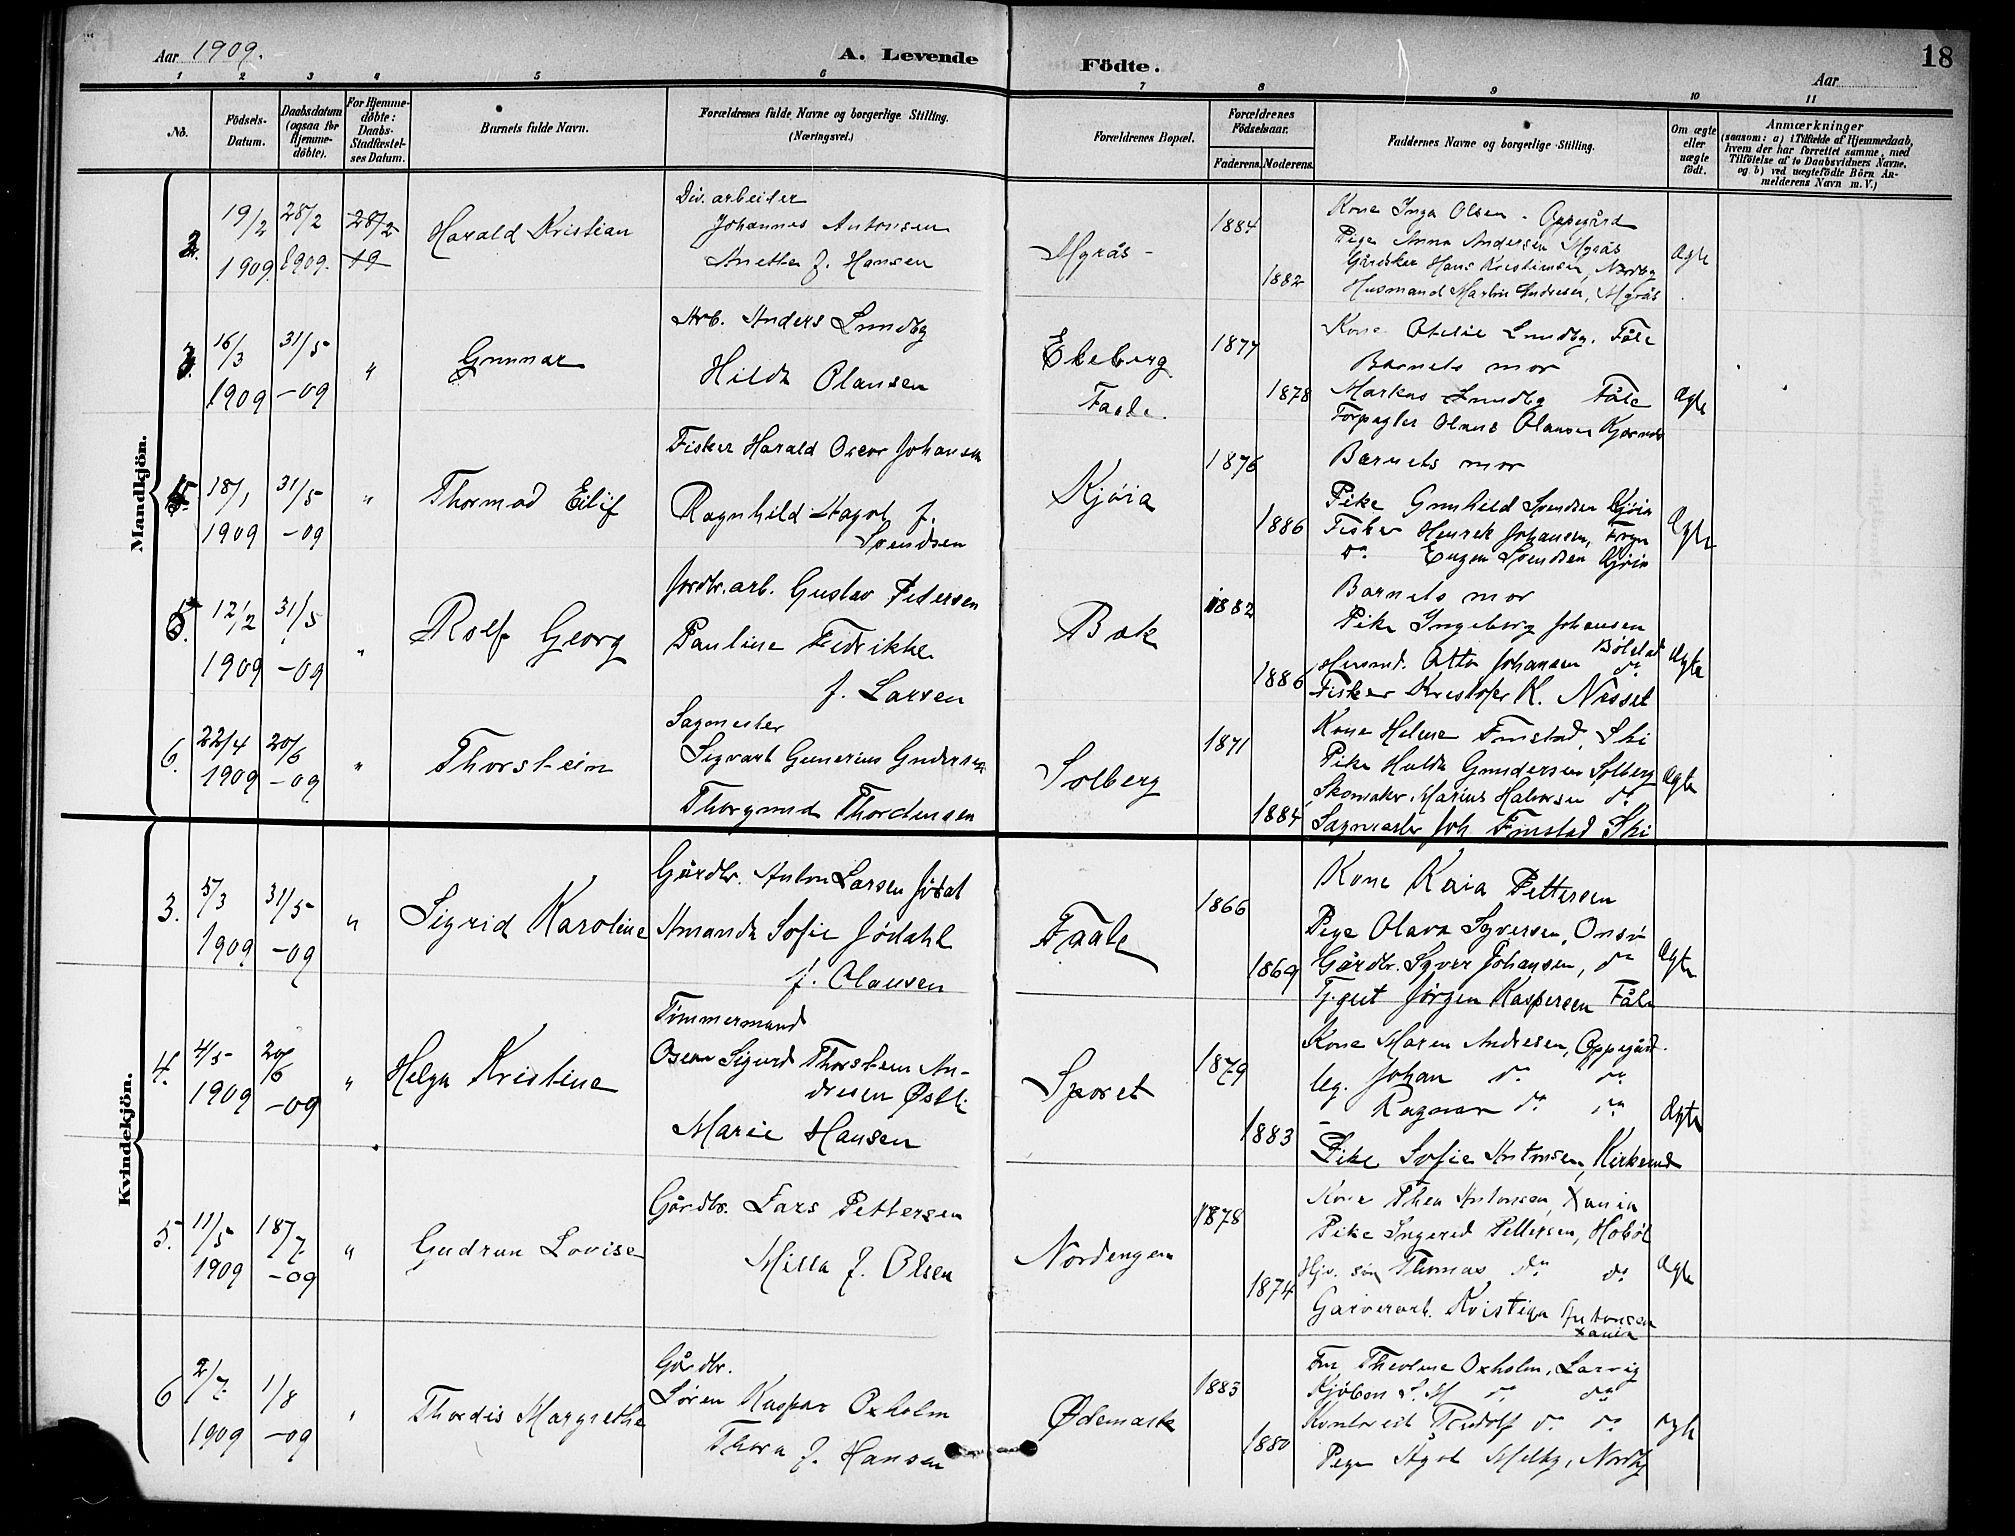 Aar 1909.
A. Levende Födte.
18
Aar
1 2 3 4 5 6 7 8 9 10 11
No.
Födsels-Datum.
Daabsdatum (ogsaa for Hjemmedöbte).
For Hjemmedöbte: Daabs-Stadfæstelses Datum.
Barnets fulde Navn.
Forældrenes fulde Navne og borgerlige Stilling.
(Næringsvei.)
Forældrenes Bopæl.
Forældrenes Födselsaar.
Faderens. Moderens.
Faddernes Navne og borgerlige Stilling.
Om ægte eller uægte födt.
Anmærkninger
(saasom: a) i Tilfælde af Hjemmedaab, hvem der har forrettet samme, med Tilföielse af to Daabsvidners Navne, og b) ved uægtefödte Börn Anmelderens Navn m. V.)
Mandkjön.
2. 19/2 1909. 28/2 1909. 28/2 19
Harald Kristian
Div. arbeiter
Johannes Antonsen
Anette f. Hansen
Myrås -
1884
1882
Kone Inga Olsen - Oppegård
Pege Anna Andersen Myrås
Hans Kristiansen, Nordby
Husmand Martin Andresen, Myrås
Ægte
3. 16/3 1909 31/5 -09 "
Gunnar
Arb. Anders Lundby
Hilda Olausen
Ekeberg
Faale.
1877
1878
Kone Otelie Lundby. Fåle
Barnets mor
Markus Lundby Fåle
Forpagter Olaus Olausen
Ægte
18/1 1909 31/5 -09 "
Thormod Eilif
Fisker Harald Oscar Johansen
Ragnhild Hagol f.
Svendsen
Kjöia
1876
1886
Barnets mor
Pike Gunhild Svendsen Kjöia
Fisker Henrik Johansen, Frogn
do Eugen Svendsen Kjöia
Ægte
5. 12/2 1909 31/5 -09 "
Rolf Georg
Jordbr. arb. Gustav Pedersen
Pauline Fedrikke
f. Larsen
Bak
1882
1886
Barnets mor
Pike Ingeborg Johansen
Bölstad
Husmd. Otto Johansen do
Fisker Kristofer K. Nesset
Ægte
6. 22/4 1909 20/6 -09 "
Thorstein
Sagmester
Sigvart Gunerius Gundersen
Thorgund Thordensen
Solberg
1871
1884
Kone Helene Finstad, Ski
Pike Hulda Gundersen Solberg
Skomaker Marius Halvorsen do
Sagmester Joh. Finstad Ski
Ægte
Kvindekjön.
3. 5/3 1909 31/5 -09 "
Sigrid Karoline
Gårdbr. Anton Larsen Jödal
Amanda Sofie Jödahl
f. Olausen
Faale
1866
1869
Kone Kaia Pettersen
Pege Olava Syversen, Onsö
Gårdbr. Syver Johansen, do
Tj.gut Jörgen Kaspersen Fåle
Ægte
4. 4/5 1909 20/6 -09 "
Helga Kristine
Tömmermand
Oscar Sigurd Thorstein An-
dresen Østli
Marie Hansen
Sporet
1879
1883
Kone Maren Andresen, Oppegård.
Ug. Johan do do
- Ragnar do do
Pike Sofie Antonsen,
Ægte
5. 11/5 1909 18/7 -09 "
Gudrun Lovise
Gårdbr. Lars Pettersen
Milla f. Olsen
Nordengen
1878
1874
Kone Thea Antonsen, Xania
Pike Ingerid Pettersen, Hoböl
Hjv. sön Thomas do do
Garverarb. Kristian Antonsen
Xania
Ægte
6 2/7 1909 1/8 -09 "
Thordis Margrethe
Gårdbr.
Sören Kaspar Oxholm
Thora f. Hansen
Ødemark
1883
1880
Fru Theoline Oxholm, Larvig
Kjöbm. S. M do do
Kontorist Rudolf do do
Pege Aagot Melby, Nordby
Ægte